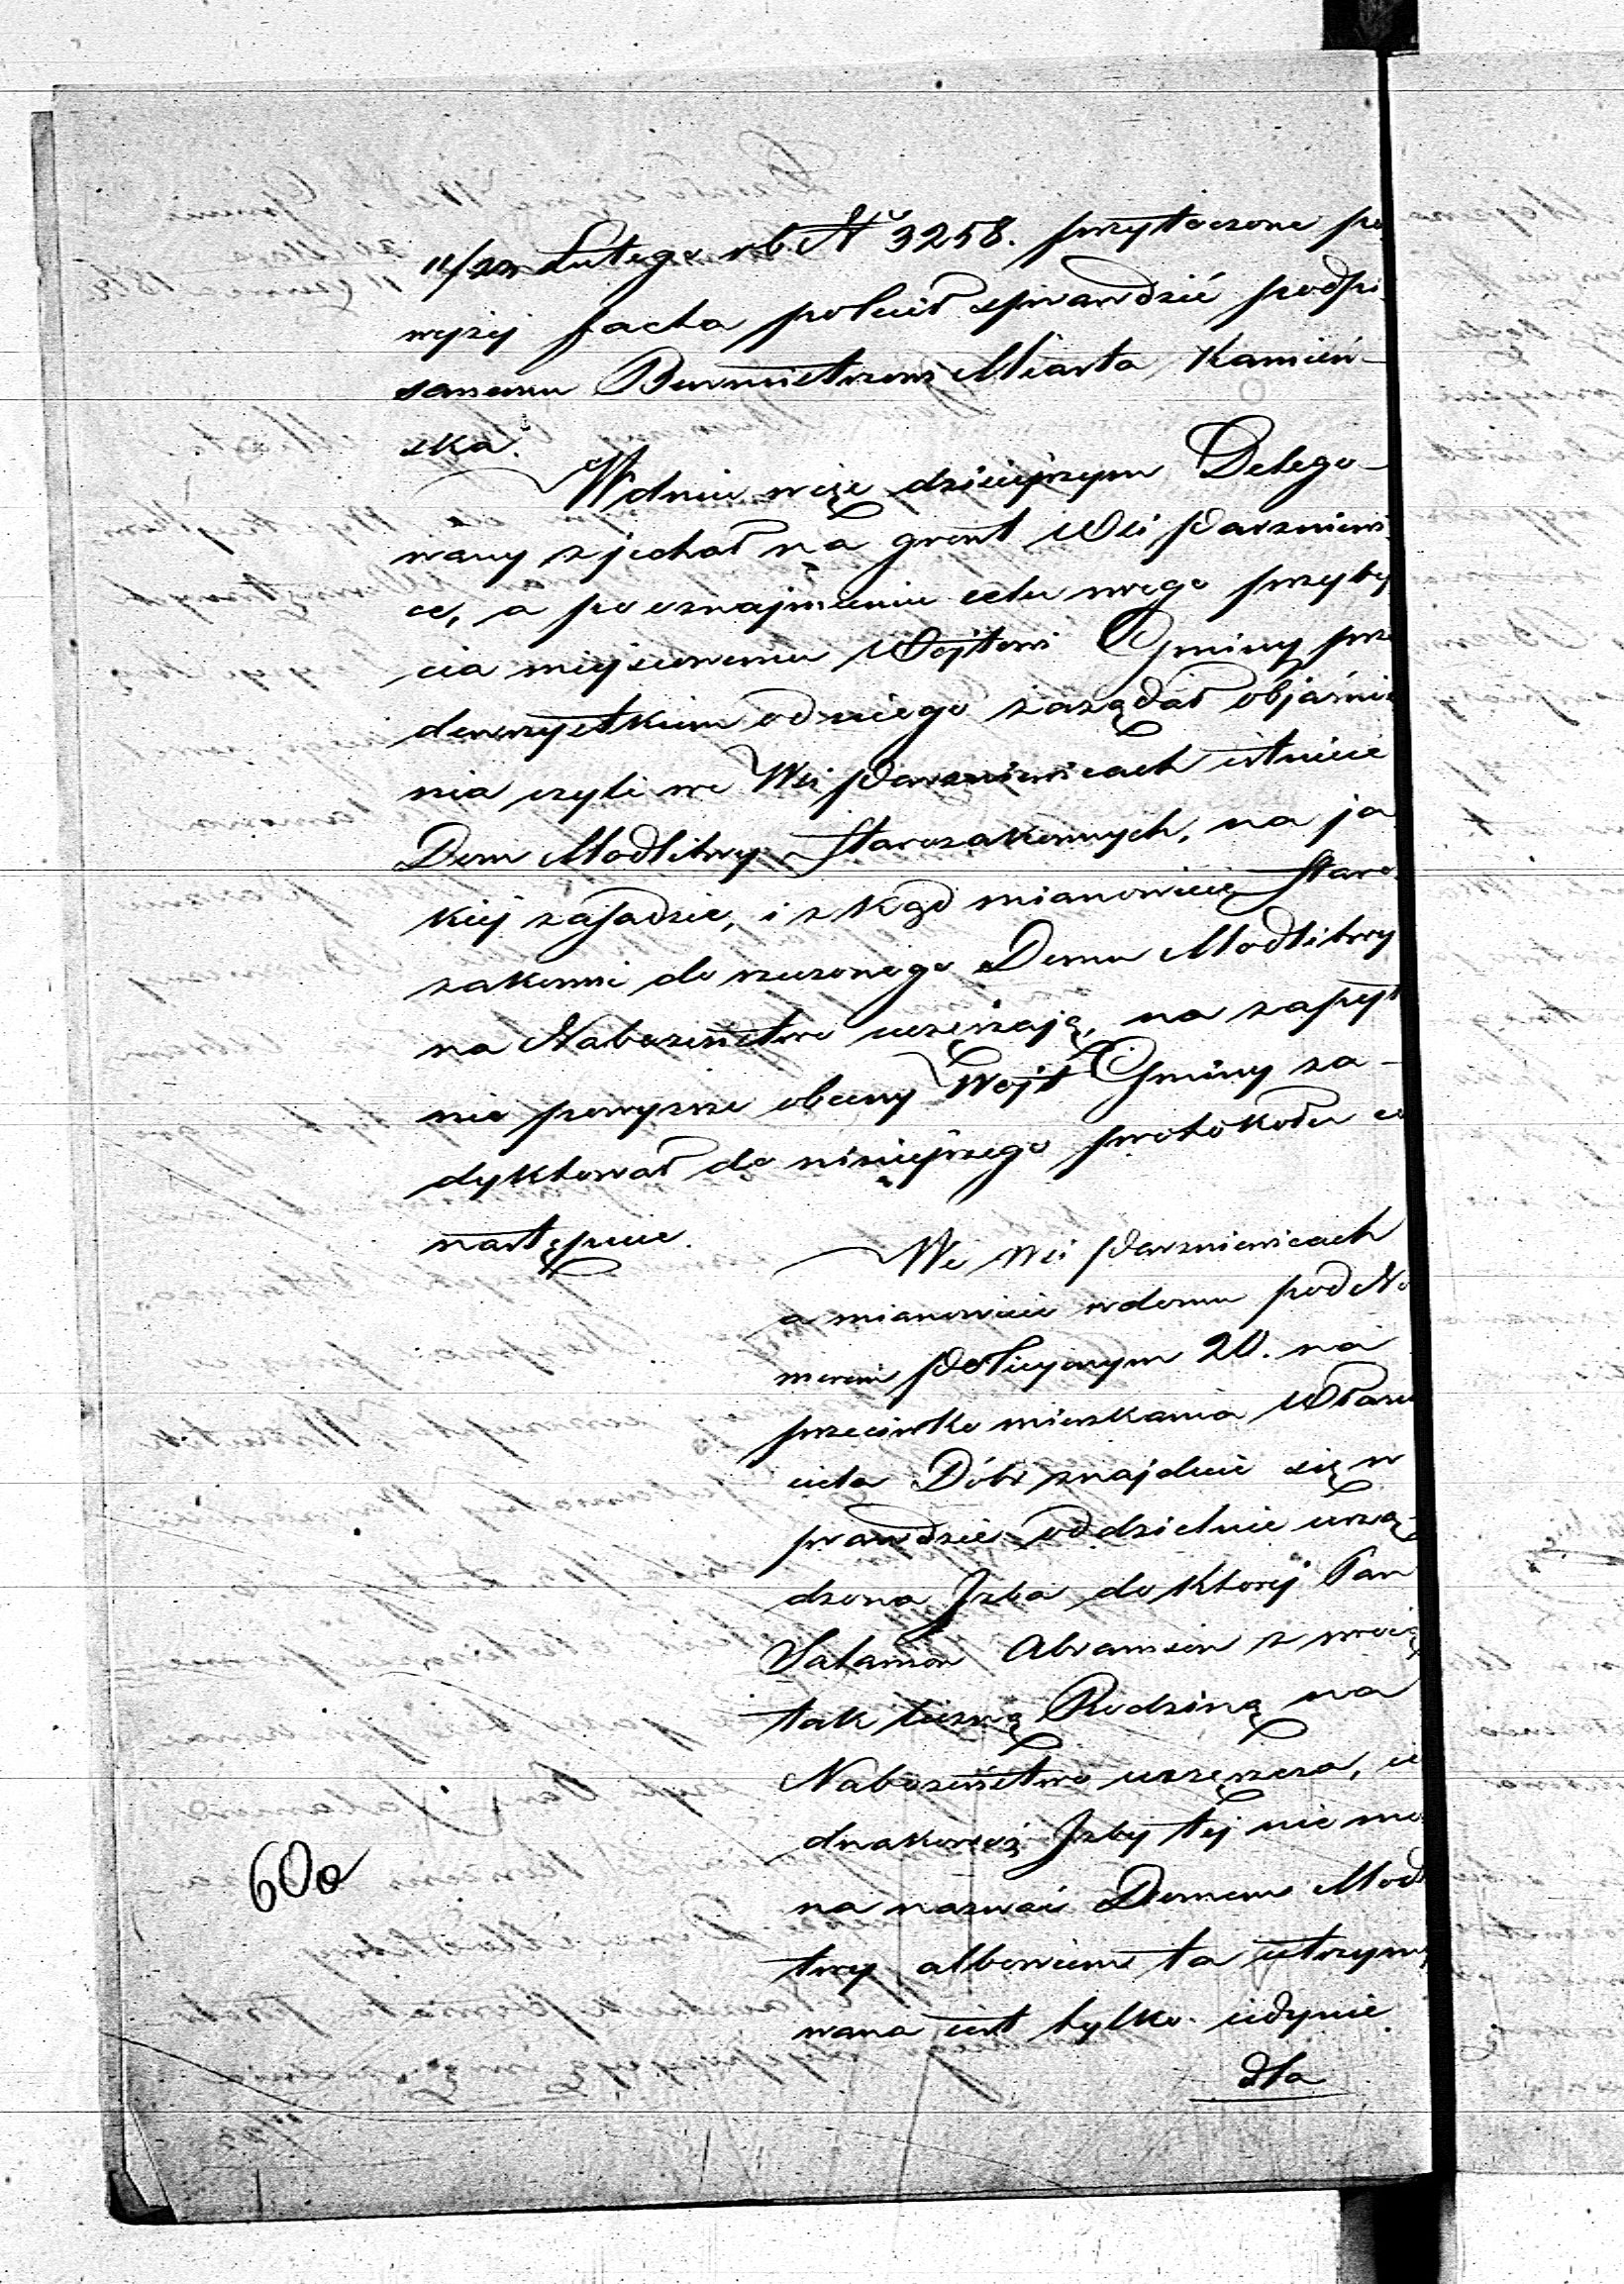 11/23 Lutego r.b. No 3258. przytoczone po
wyżej facta polecił sprawdzić podpi
sanemu Burmistrzowi Miasta Kamień-
ska.
W dniu więc dzisiejszym Delego-
wany zjechał na grunt Wsi Parzniewi
ce, a po oznajmieniu celu swego przyby
cia miejscowemu Wójtowi Gminy prze
dewszystkiem od niego zażądał objaśnie
nia czyli we Wsi Parzniewicach istnieie
Dom Modlitwy Starozakonnych, na ja
kiej zasadzie, i zkąd mianowicie Staro
zakonni do rzeczonego Domu Modlitwy
na Nabożeństwo uczęszają, na zapyt
nie powyższe obecny Wójt Gminy za-
dyktował do niniejszego protokołu co
następuie.
We Wsi Parzniewicach
a mianowicie w domu pod Nu
merem Policyjnym 20. na
przeciwko mieszkania Włani
ciela Dóbr znajduie się w
prawdzie oddzielnie urzą-
dzona Izba do ktorej Pan
Salamon Abramson z swoią
tak liczną Rodziną na
Nabożeństwo uczęszcza, ie
dnakowoż Izby tej nie mo
na nazwać Domem Modl
twy albowiem ta utrzymy
wana iest tylko iedynie
dla
600